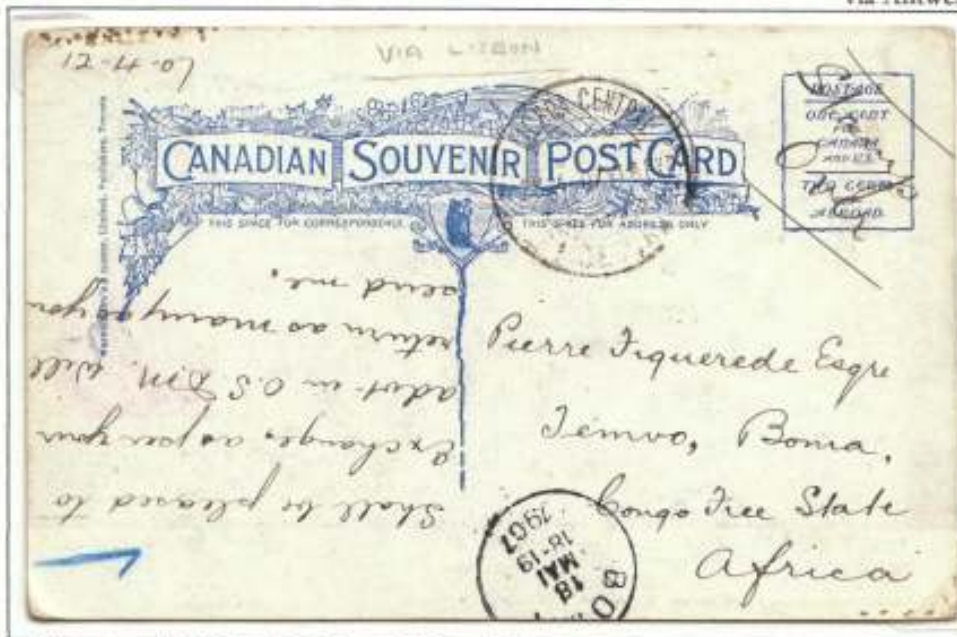 via
VIA LISBON
12-4-07
CENTRAL
CANADIAN SOUVENIR POST CARD
THIS SPACE FOR CORRESPONDENCE
THIS SPACE FOR ADDRESS ONLY
POSTAGE
ONE CENT
FOR
CANADA
AND U.S.
TWO CENTS
ABROAD
Rutter, Limited, Publishers, Toronto
Shall be pleased to
Exchange, as per your
advt. in Will
return as many as you
send me.
Pierre Figuerede Esqre
Temvo, Boma,
Congo Free State
Africa
BO
18
MAI
18-19
1907